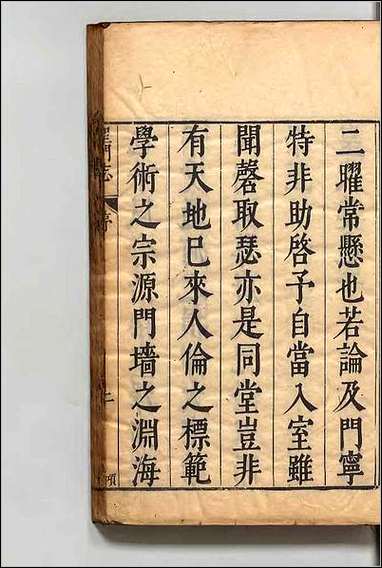 二曜常懸也若論及門寧
特非助啓予自當入室雖
聞磬取瑟亦是同堂豈非
有天地已來人倫之標範
學術之宗源門墻之淵海
聖門志
序